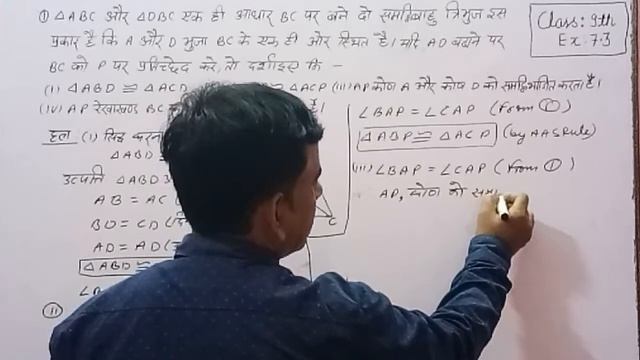 ① △ABC और △DBC एक ही आधार BC पर बने दो समद्विबाहु त्रिभुज इस
प्रकार है कि A और D भुजा BC के एक ही ओर स्थित है। यदि AD बढ़ाने पर
BC को P पर प्रतिच्छेद करे, तो दर्शाइए कि -
(i) △ABD ≅ △ACD △ACP (iii) AP कोण A और कोण D को समद्विभाजित करता है।
(iv) AP रेखाखण्ड BC है।
Class: 9th
Ex. 7.3
हल (i) सिद्ध करना
△ABD ≅
उत्पत्ति △ABD
AB = AC
BD = CD
AD = AD
△ABD ≅
(ii)
∠BAP = ∠CAP (from ①)
△ABP ≅ △ACP (by AAS Rule)
(iii) ∠BAP = ∠CAP (from ①)
AP, कोण को सम
C